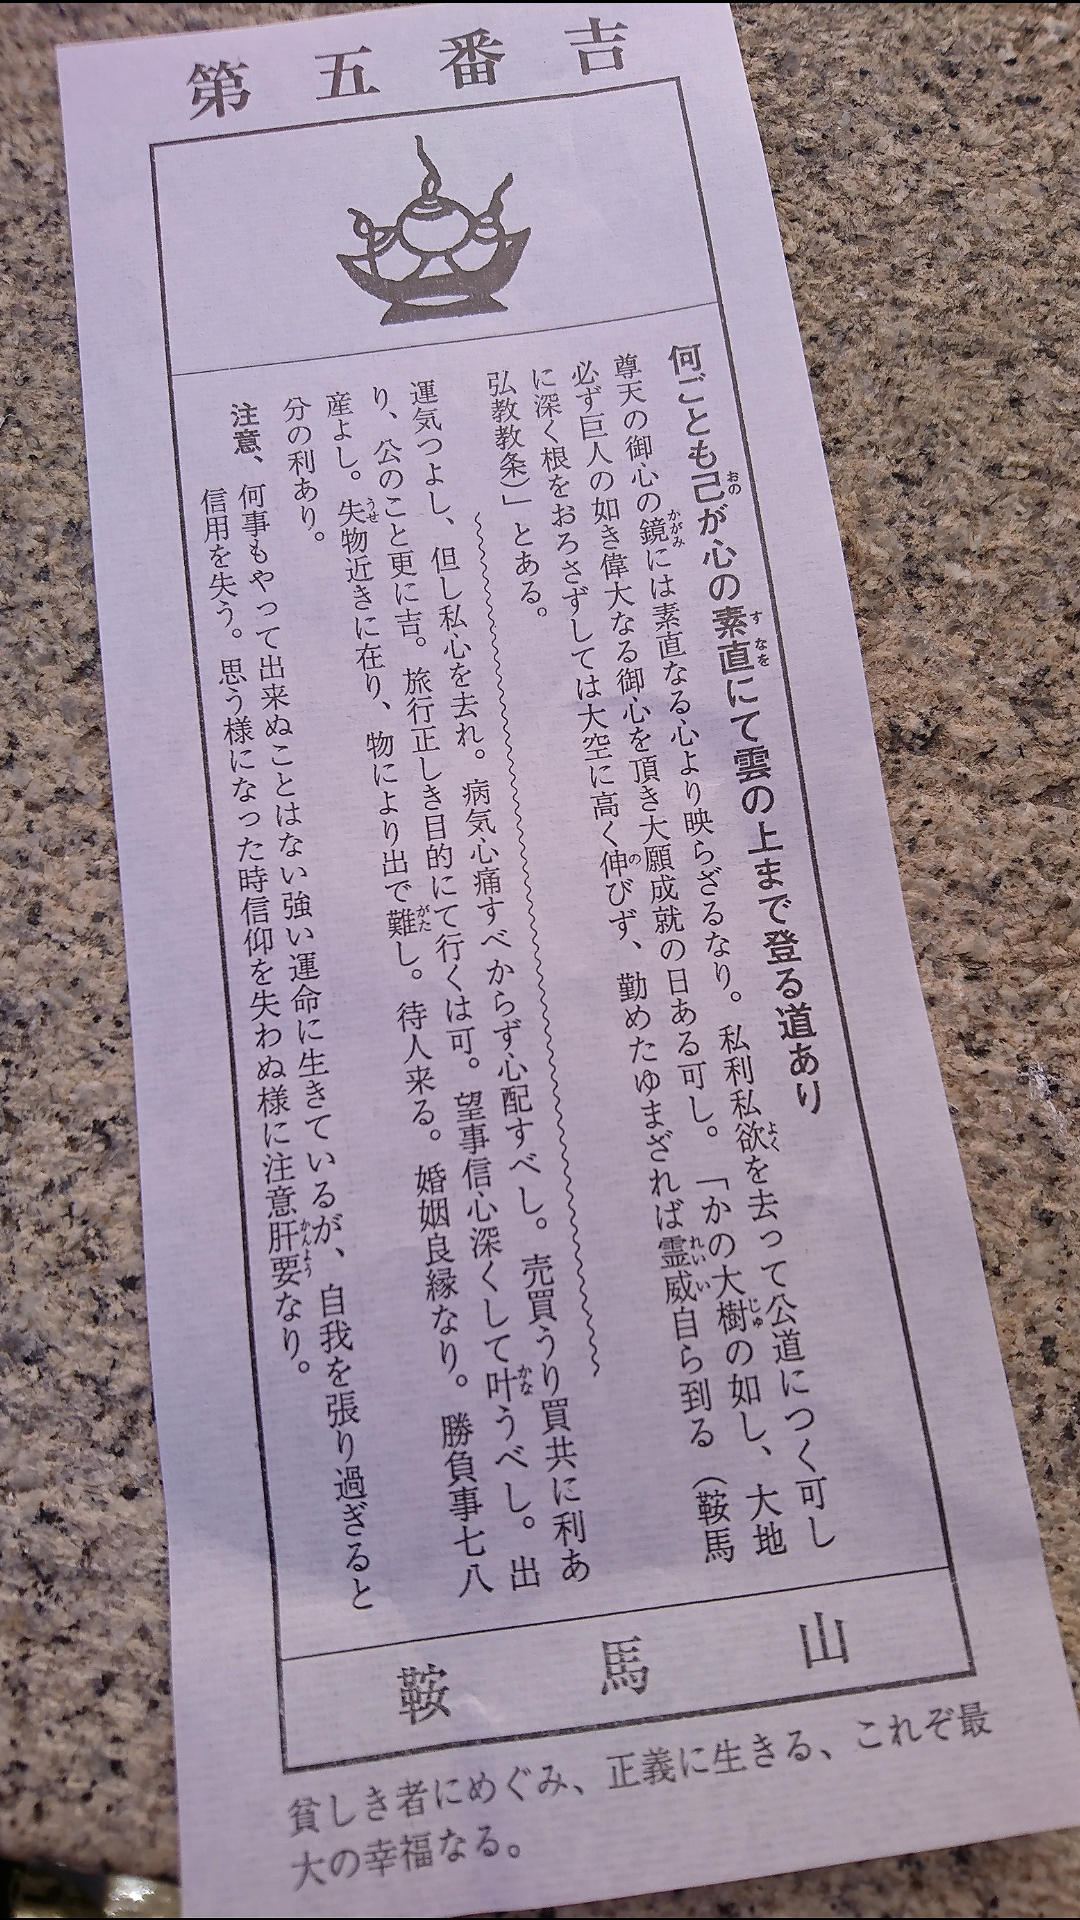 第五番吉
何ごとも己が心の素直にて雲の上まで登る道あり
尊天の御心の鏡には素直なる心より映らざるなり。私利私欲を去って公道につく可し
必ず巨人の如き偉大なる御心を頂き大願成就の日ある可し。「かの大樹の如し、大地
に深く根をおろさずしては大空に高く伸びず、勤めたゆまざれば霊威自ら到る（鞍馬
弘教教条）」とある。
運気つよし、但し私心を去れ。病気心痛すべからず心配すべし。売買うり買共に利あ
り、公のこと更に吉。旅行正しき目的にて行くは可。望事信心深くして叶うべし。出
産よし。失物近きに在り、物により出で難し。待人来る。婚姻良縁なり。勝負事七八
分の利あり。
注意、何事もやって出来ぬことはない強い運命に生きているが、自我を張り過ぎると
信用を失う。思う様になった時信仰を失わぬ様に注意肝要なり。
鞍馬山
貧しき者にめぐみ、正義に生きる、これぞ最
大の幸福なる。